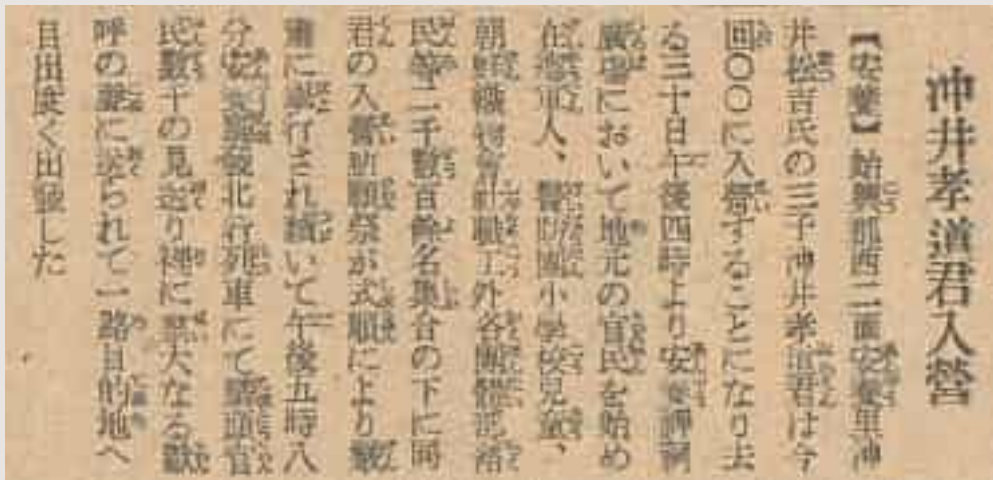 沖井孝道君入營
【安養】始興郡西二面安養里沖
井松吉氏の三子沖井孝道君は今
回〇〇に入營することになり去
る三十日午後四時より安養神祠
廣場において地元の官民を始め
在鄕軍人、警防團小學校兒童、
朝鮮織物會社職工外各團體部落
民等二千數百餘名集合の下に同
君の入營祈願祭が式順により嚴
肅に執行され續いて午後五時八
分安養驛發北行列車にて驛頭官
民數千の見送り裡に盛大なる歡
呼の聲に送られて一路目的地へ
目出度く出發した